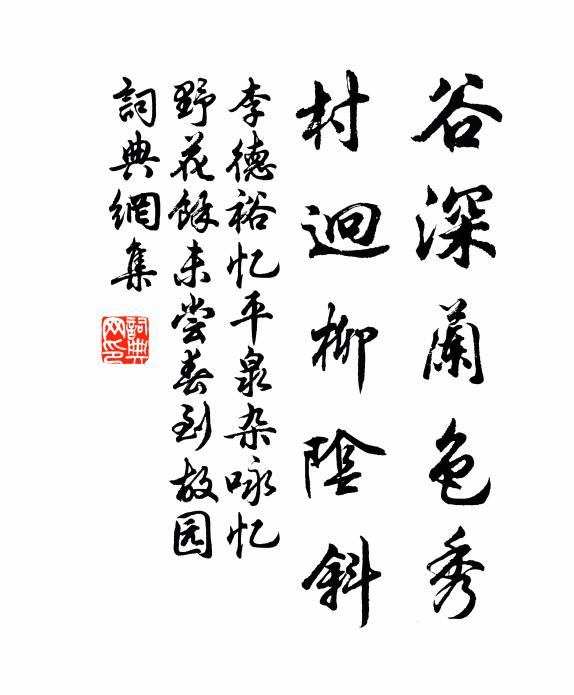 谷深蘭色秀
村迥柳陰斜
李德裕忆平泉杂咏忆
野花餘未尝春到故园
詞典網集
詞典网印